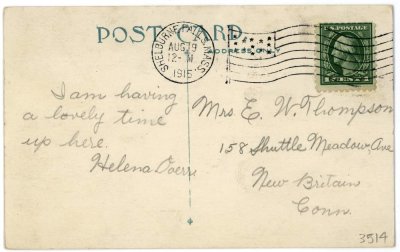 POST CARD
ADDRESS ONLY
SHELBURNE FALLS, MASS.
AUG 19
12 - M
1915
U.S. POSTAGE
I am having
a lovely time
up here.
Helena
Mrs. E. W. Thompson
158 Shuttle Meadow, Ave
New Britain
Conn.
3514